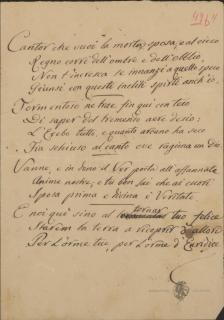 4864
Cantor che vuoi la morta sposa, e al cieco
Regno corri dell'ombre e dell'oblio,
Non t'incresca se innanzi a quello speco
Giunsi con queste inclite spirti anch'io.
Tormentoso ne trae fin qui con teco
Di saper del tremendo aere desio:
L'Erebo tutto, e quanto arcano ha seco
Fia schiuso al canto ove ragiona un Dio
Vanne, e in dono il Ver porta all'affannate
Anime nostre, e tu ben sai che ai cuori
Sposa prima e divina è Veritate
E noi qui sino al tornar tuo felice
Starem la terra a ricoprir d'allori
Per l'orme tue, per l'orme d'Euridice